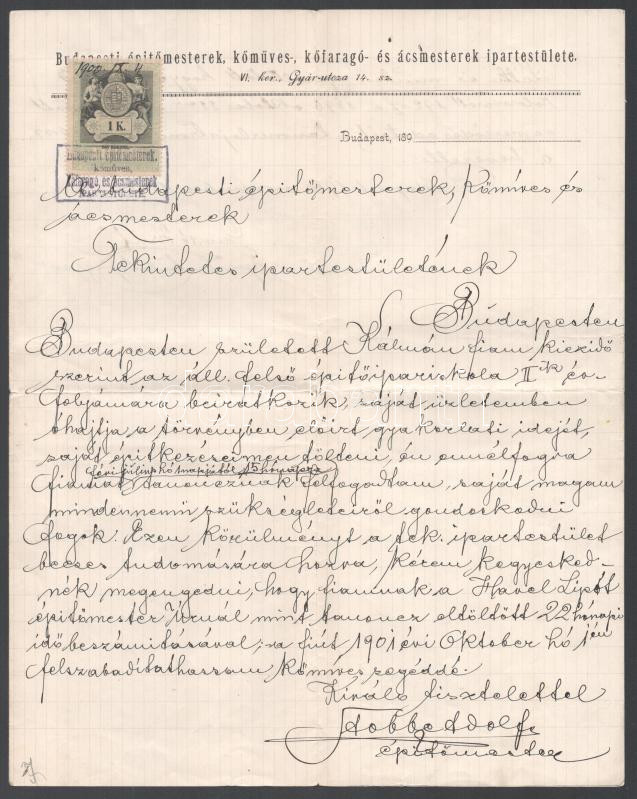 Budapesti építőmesterek, kőműves-, kőfaragó- és ácsmesterek ipartestülete.
VI. ker., Gyár-utcza 14. sz.
1900 IX
1 K.
Budapest, 189
Budapesti építőmesterek,
kőműves,
kőfaragó, és ácsmesterek
IPARTESTÜLETE
A budapesti építőmesterek, Kőmíves és
ácsmesterek
Tekintetes ipartestületének
Budapesten
Budapesten született Kálmán fiam
szerint az áll. felső építőipariskola II ik co-
folyamara beiratkozik, saját üzletemben
óhajtja a törvényben előirt gyakorlati idejét,
saját építkezéseimen tölteni, én ennélfogva
évi július hó 1 napjától 15 hónapra
fiamat tanoncznak felfogadtam, saját magam
mindennemű szükségleteiről gondoskodni
fogok. Ezen körülményt a tek. ipartestület
becses tudomására hozva, kérem kegyesked-
nék megengedni, hogy fiamnak a Havel Lipót
építőmester Úrnál mint tanoncz eltöltött 22 hónapi
idő beszámításával, a fiút 1901 évi Oktober hó 1 én
felszabadítathassam kőmíves segéddé.
Kiváló tisztelettel
Stobbe Adolf
építőmester